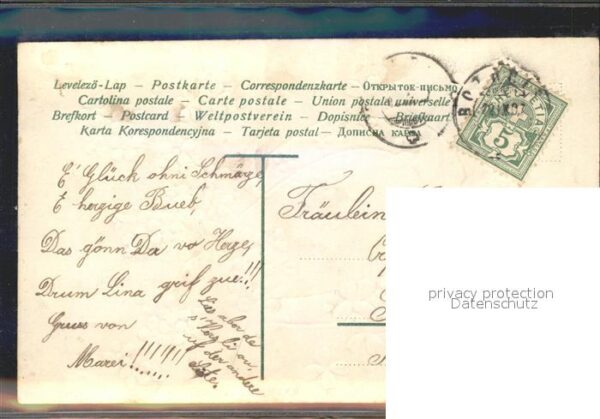 Levelező-Lap — Postkarte — Correspondenzkarte — Открыток-письмо
Cartolina postale — Carte postale — Union postale universelle
Brefkort — Postcard — Weltpostverein — Dopisnice — Briefkaart
Karta Korespondencyjna — Tarjeta postal — Дописна карта
5
E' Glück ohni Schmärze,
E herzige Bueb,
Das gönn Da vo Herze,
Drum Lina grif zue!!!
Gruss von
Marei!!!!!!
Lies aber da
s'Herz
uf der andere
Site.
Fräulein
privacy protection
Datenschutz